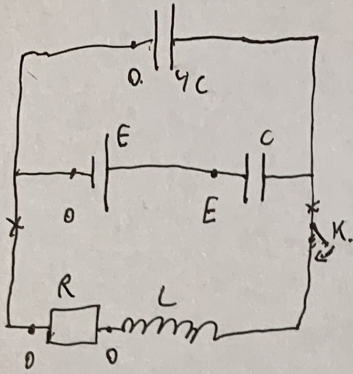 0. 4C
E C
0 E
K.
R L
0 0